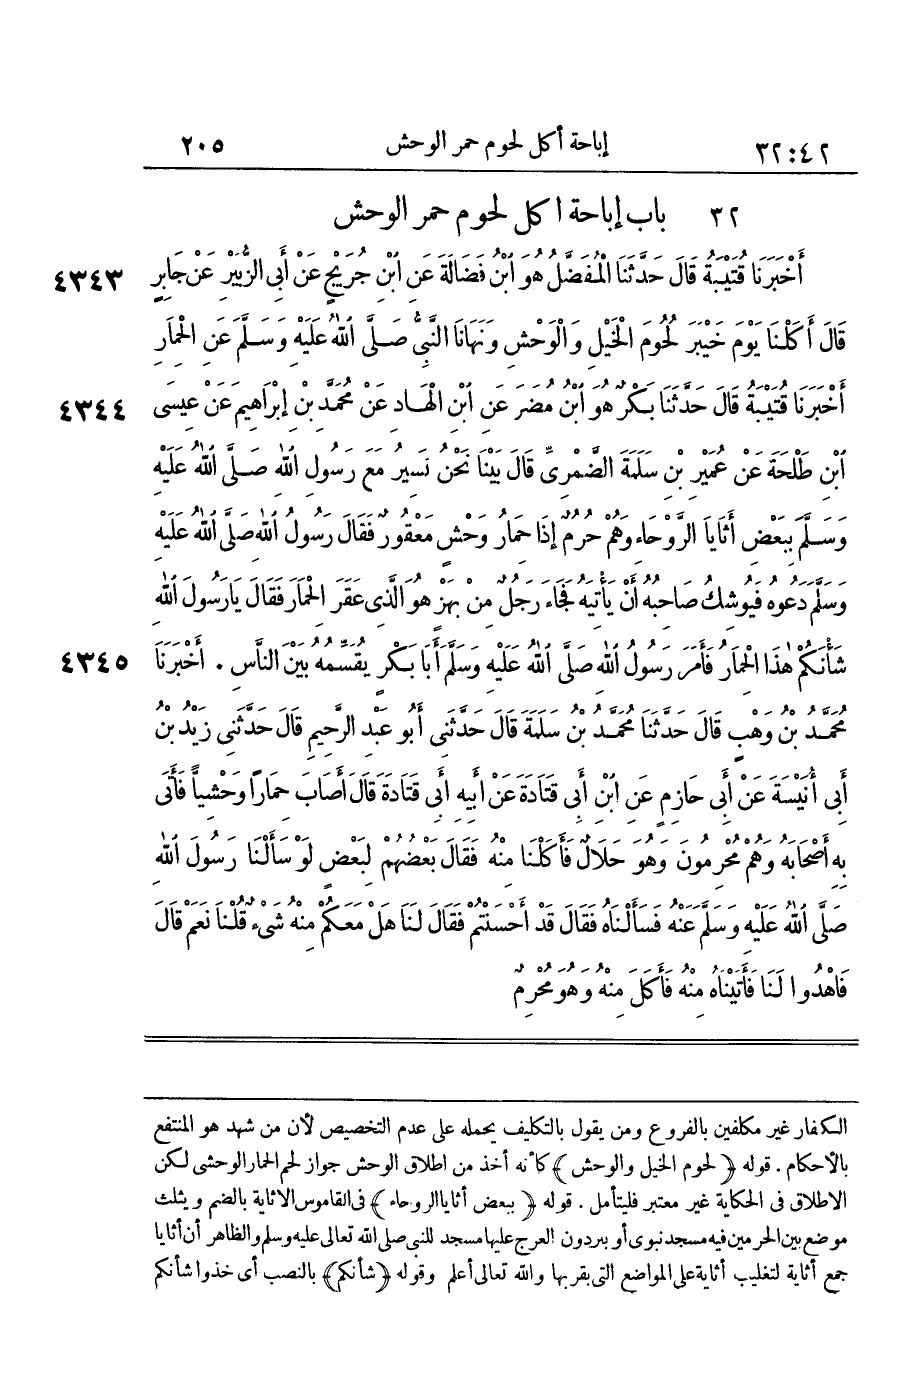 ٣٢:٤٢ إباحة أكل لحوم حمر الوحش ٢٠٥
٣٢ باب إباحة اكل لحوم حمر الوحش
أَخْبَرَنَا قُتَيْبَةُ قَالَ حَدَّثَنَا الْمُفَضَّلُ هُوَ ابْنُ فَضَالَةَ عَنِ ابْنِ جُرَيْجٍ عَنْ أَبِي الزُّبَيْرِ عَنْ جَابِرٍ ٤٣٤٣
قَالَ أَكَلْنَا يَوْمَ خَيْبَرَ لُحُومَ الْخَيْلِ وَالْوَحْشِ وَنَهَانَا النَّبِيُّ صَلَّى اللهُ عَلَيْهِ وَسَلَّمَ عَنِ الْحِمَارِ
أَخْبَرَنَا قُتَيْبَةُ قَالَ حَدَّثَنَا بَكْرٌ هُوَ ابْنُ مُضَرَ عَنِ ابْنِ الْهَادِ عَنْ مُحَمَّدِ بْنِ إِبْرَاهِيمَ عَنْ عِيسَى ٤٣٤٤
ابْنِ طَلْحَةَ عَنْ عُمَيْرِ بْنِ سَلَمَةَ الضَّمْرِيِّ قَالَ بَيْنَا نَحْنُ نَسِيرُ مَعَ رَسُولِ اللهِ صَلَّى اللهُ عَلَيْهِ
وَسَلَّمَ بِبَعْضِ أَثَايَا الرَّوْحَاءِ وَهُمْ حُرُمٌ إِذَا حِمَارُ وَحْشٍ مَعْقُورٌ فَقَالَ رَسُولُ اللهِ صَلَّى اللهُ عَلَيْهِ
وَسَلَّمَ دَعُوهُ فَيُوشِكُ صَاحِبُهُ أَنْ يَأْتِيَهُ فَجَاءَ رَجُلٌ مِنْ بَهْزٍ هُوَ الَّذِى عَقَرَ الْحِمَارَ فَقَالَ يَارَسُولَ اللهِ
شَأْنَكُمْ هٰذَا الْحِمَارُ فَأَمَرَ رَسُولُ اللهِ صَلَّى اللهُ عَلَيْهِ وَسَلَّمَ أَبَا بَكْرٍ يُقَسِّمُهُ بَيْنَ النَّاسِ . أَخْبَرَنَا ٤٣٤٥
مُحَمَّدُ بْنُ وَهْبٍ قَالَ حَدَّثَنَا مُحَمَّدُ بْنُ سَلَمَةَ قَالَ حَدَّثَنِى أَبُو عَبْدِ الرَّحِيمِ قَالَ حَدَّثَنِى زَيْدُ بْنُ
أَبِي أُنَيْسَةَ عَنْ أَبِي حَازِمٍ عَنِ ابْنِ أَبِي قَتَادَةَ عَنْ أَبِيهِ أَبِي قَتَادَةَ قَالَ أَصَابَ حِمَاراً وَحْشِياً فَأَتَى
بِهِ أَصْحَابَهُ وَهُمْ مُحْرِمُونَ وَهُوَ حَلَالٌ فَأَكَلْنَا مِنْهُ فَقَالَ بَعْضُهُمْ لِبَعْضٍ لَوْ سَأَلْنَا رَسُولَ اللهِ
صَلَّى اللهُ عَلَيْهِ وَسَلَّمَ عَنْهُ فَسَأَلْنَاهُ فَقَالَ قَدْ أَحْسَنْتُمْ فَقَالَ لَنَا هَلْ مَعَكُمْ مِنْهُ شَىْءٌ قُلْنَا نَعَمْ قَالَ
فَاهْدُوا لَنَا فَأَتَيْنَاهُ مِنْهُ فَأَكَلَ مِنْهُ وَهُوَ مُحْرِمٌ
الكفار غير مكلفين بالفروع ومن يقول بالتكليف يحمله على عدم التخصيص لأن من شهد هو المنتفع
بالأحكام . قوله ﴿ لحوم الخيل والوحش ﴾ كأنه أخذ من اطلاق الوحش جواز لحم الحمار الوحشى لكن
الاطلاق فى الحكاية غير معتبر فليتأمل . قوله ﴿ ببعض أثايا الروحاء ﴾ فى القاموس الاثاية بالضم ويثلث
موضع بين الحرمين فيه مسجد نبوى أو بئر دون العرج عليها مسجد للنبى صلى الله تعالى عليه وسلم والظاهر أن أثايا
جمع أثاية لتغليب أثاية على المواضع التى بقربها والله تعالى أعلم وقوله ﴿شأنكم﴾ بالنصب أى خذوا شأنكم